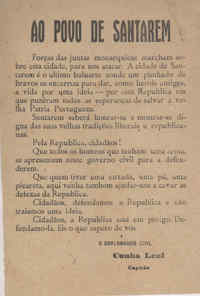 AO POVO DE SANTAREM
Forças das juntas monarquicas marcham so-
bre esta cidade, para nos atacar. A cidade de San-
tarem é o ultimo baluarte aonde um punhado de
bravos se encarniça para dar, como heroes antigos,
a vida por uma ideia — por esta Republica em
que puzéram todas as esperanças de salvar a ve-
lha Patria Portugueza.
Santarem saberá honrar-se e mostrar-se di-
gna das suas velhas tradições liberais e republica-
nas.
Pela Republica, cidadãos!
Que todos os homens que tenham uma arma,
se apresentem neste governo civil para a defen-
derem.
Que quem tiver uma enxada, uma pá, uma
picareta, aqui venha tambem ajudar-nos a cavar as
defezas da Republica.
Cidadãos, defendamos a Republica e não
traiamos uma ideia.
Cidadãos, a Republica está em perigo. De-
fendamo-la. Eis o que espéro de vós.
O GOVERNADOR CIVIL
Cunha Leal
Capitão